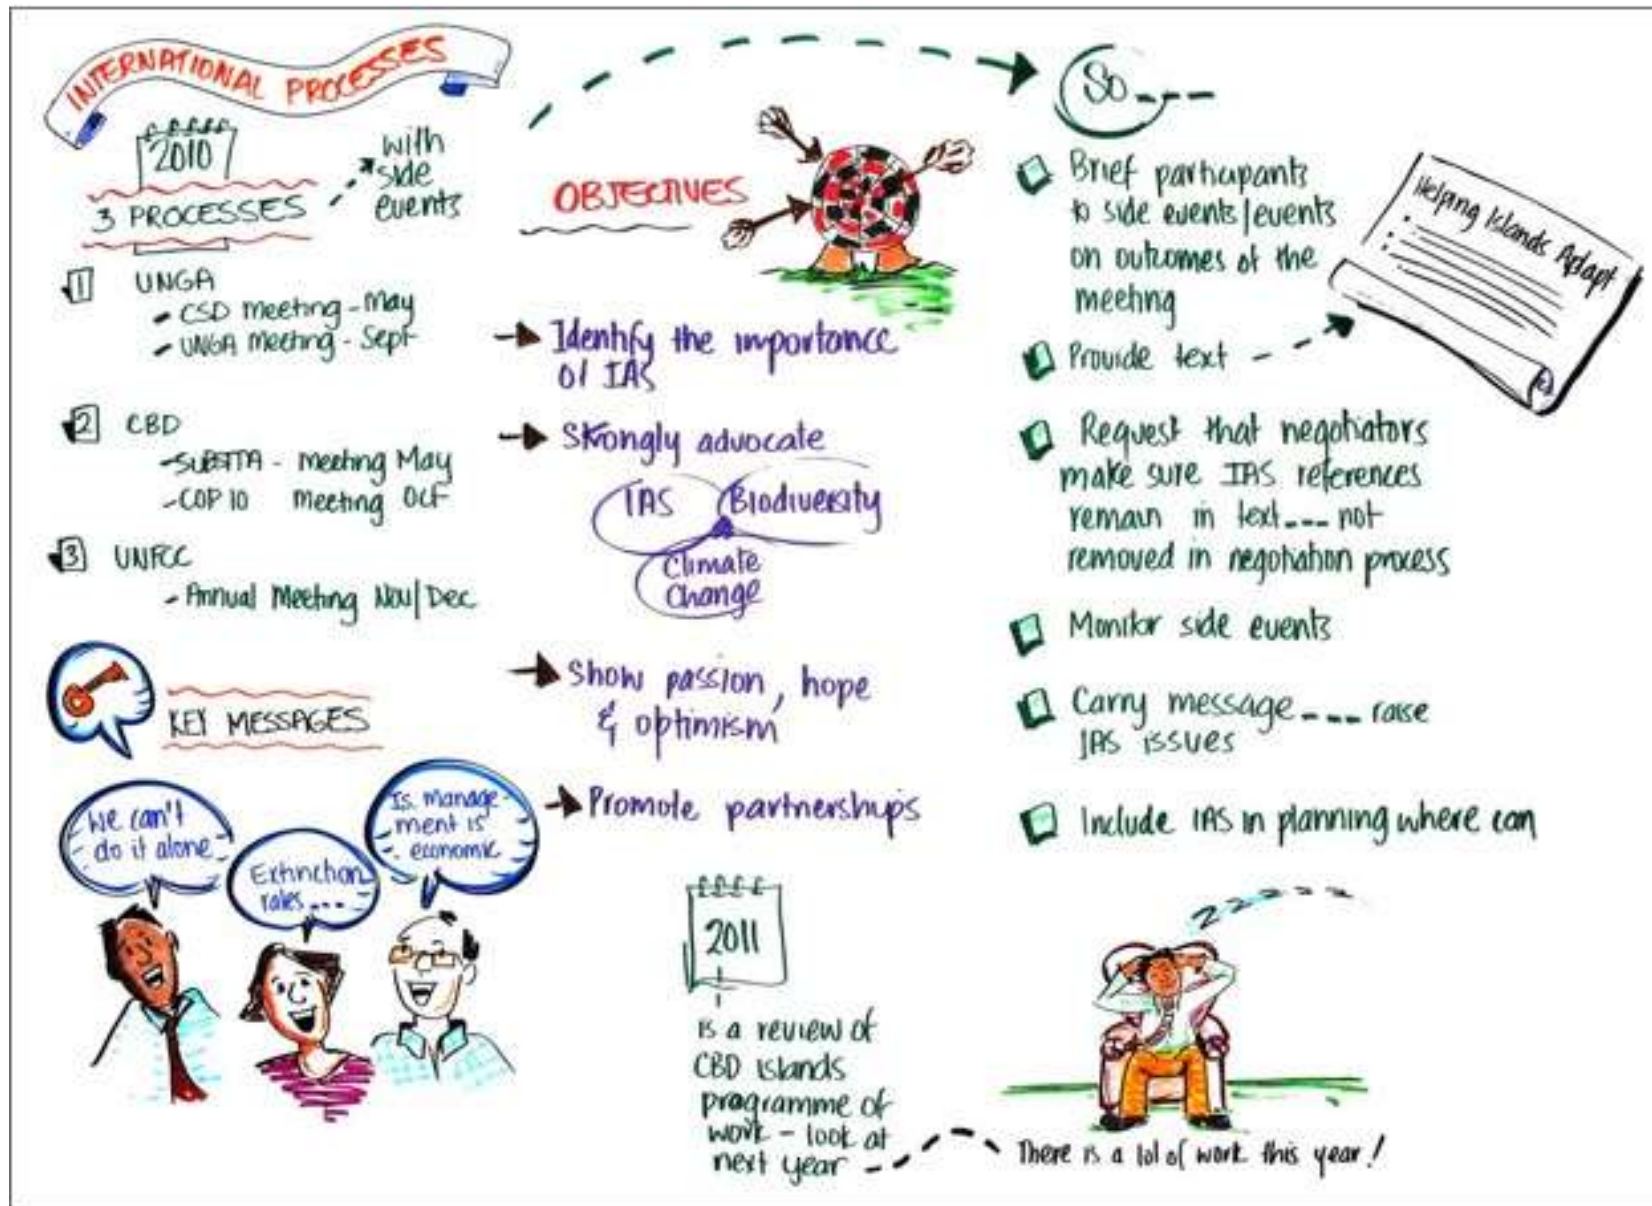 INTERNATIONAL PROCESSES
2010
3 PROCESSES
with
side
events
1 UNGA
- CSD meeting - May
- UNGA meeting - Sept
2 CBD
- SUBSTTA - meeting May
- COP 10 meeting Oct
3 UNFCC
- Annual Meeting Nov/Dec
KEY MESSAGES
We can't
do it alone
Extinction
rates ---
Is. manage-
ment is
economic
OBJECTIVES
Identify the importance
of IAS
Strongly advocate
IAS
Biodiversity
Climate
Change
Show passion, hope
& optimism
Promote partnerships
2011
is a review of
CBD islands
programme of
work - look at
next year
So ---
Brief participants
to side events/events
on outcomes of the
meeting
Provide text
Helping Islands Adapt
Request that negotiators
make sure IAS references
remain in text --- not
removed in negotiation process
Monitor side events
Carry message --- raise
IAS issues
Include IAS in planning where can
zzzzzz
There is a lot of work this year!